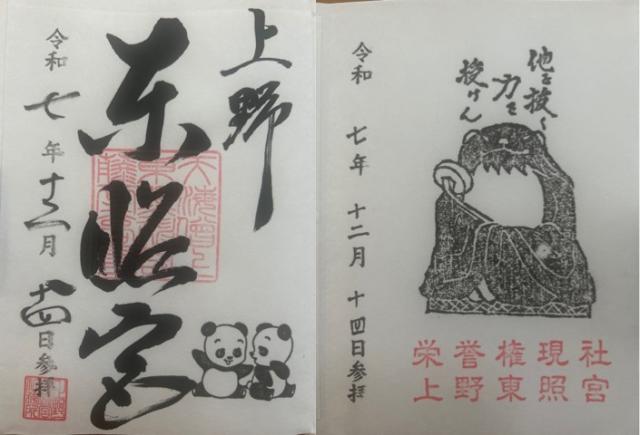 上野
東照宮
令和七年十二月十四日参拝
他を抜く
力を
授けん
令和七年十二月十四日参拝
栄誉権現社
上野東照宮